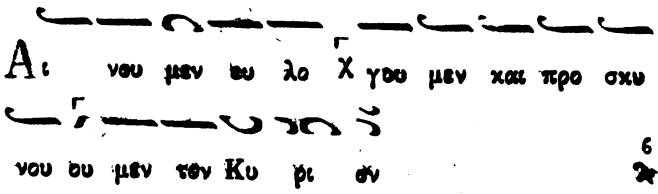 Αι νου μεν ευ λο γου μεν και προ σκυ
νου ου μεν τον Κυ ρι ον